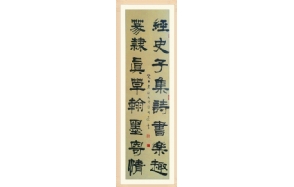 經史子集詩書樂趣
篆隸真草翰墨寄情